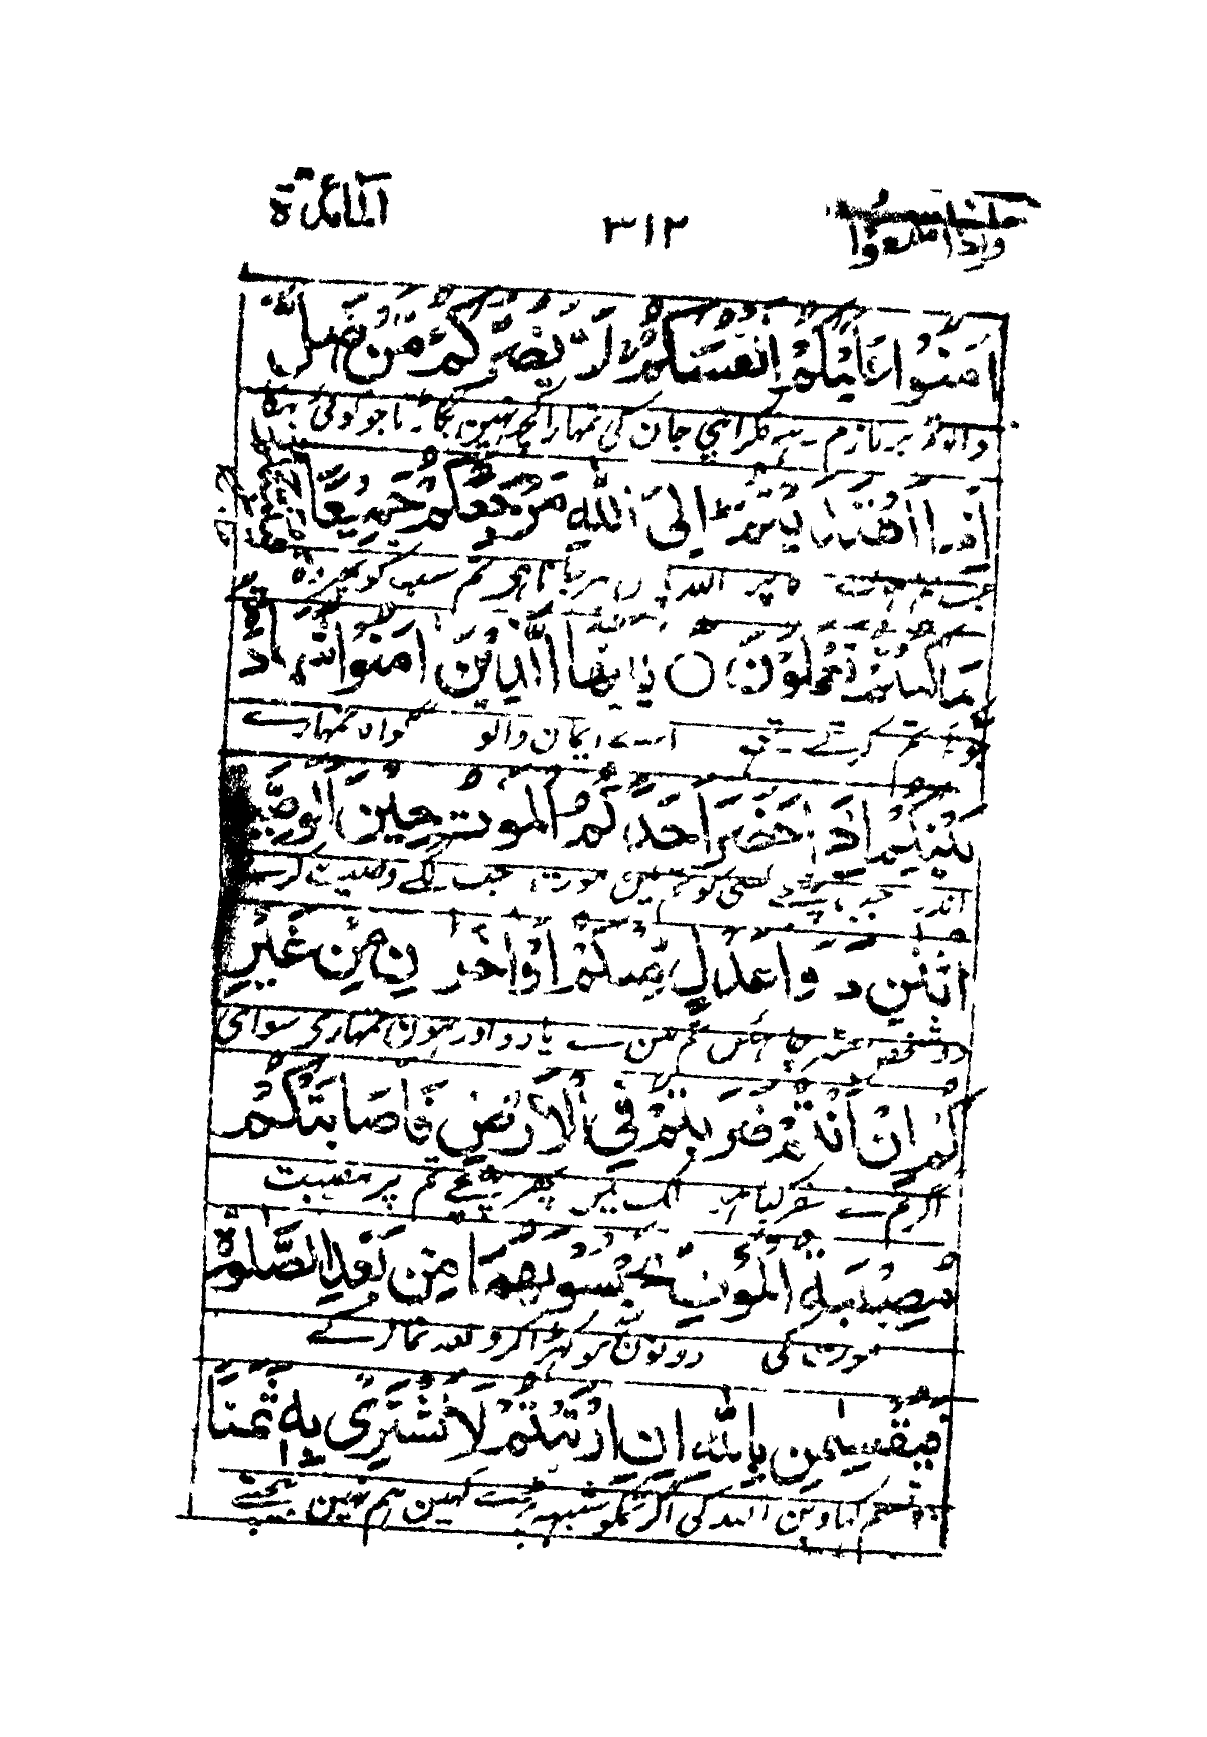 المائدة ٣١٢ واذا سمعوا
اٰمَنُوْا عَلَيْكُمْ اَنْفُسَكُمْ لَا يَضُرُّكُمْ مَّنْ ضَلَّ
والو تم پر لازم ہے فکر اپنی جان کی تمہارا کچھ نہین بگاڑتا جو کوئی بہکا
اِذَا اهْتَدَيْتُمْ اِلَى اللّٰهِ مَرْجِعُكُمْ جَمِيْعًا
اللہ پاس پھر جانا ہی تم سب کو پھر وہ
بِمَا كُنْتُمْ تَعْمَلُوْنَ ○ يٰاَيُّهَا الَّذِيْنَ اٰمَنُوْا شَهَادَةُ
جو تم کرتے تھے اے ایمان والو گواہ تمہارے
بَيْنِكُمْ اِذَا حَضَرَ اَحَدَكُمُ الْمَوْتُ حِيْنَ الْوَصِيَّةِ
اندر جب پہنچے کسی کو تم مین موت جب لگے وصیت کرنے
اثْنٰنِ ذَوَا عَدْلٍ مِّنْكُمْ اَوْ اٰخَرٰنِ مِنْ غَيْرِ
دو شخص معتبر چاہئیں تم مین سے یا دو اور ہون تمہاری سوای
كُمْ اِنْ اَنْتُمْ ضَرَبْتُمْ فِى الْاَرْضِ فَاَصَابَتْكُمْ
اگر تم نے سفر کیا ہو ملک مین پھر پہنچے تم پر مصیبت
مُصِيْبَةُ الْمَوْتِ تَحْبِسُوْنَهُمَا مِنْ بَعْدِ الصَّلٰوةِ
موت کی دونون کو کھڑا کرو بعد نماز کے
فَيُقْسِمٰنِ بِاللّٰهِ اِنِ ارْتَبْتُمْ لَا نَشْتَرِىْ بِهٖ ثَمَنًا
وہ قسم کھاوین اللہ کی اگر تمکو شبہہ پڑے کہین ہم نہین بیچتے